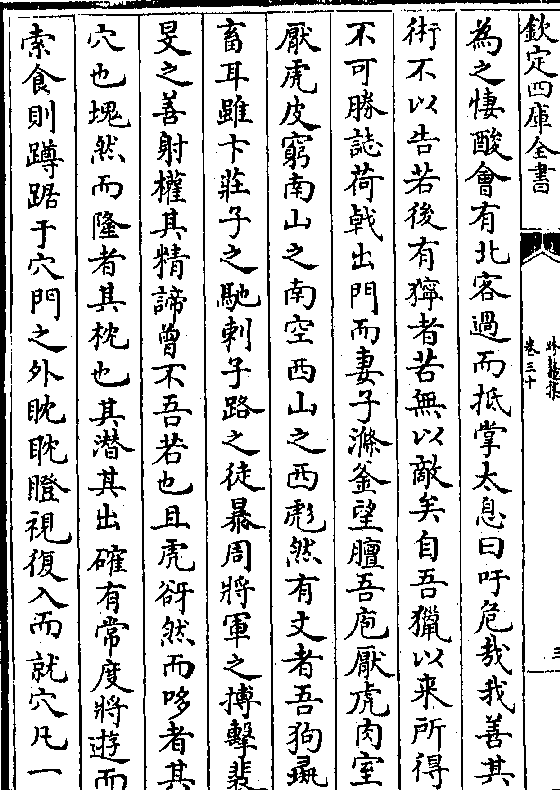 欽定四庫全書
卷三十
為之悽酸會有北客過而抵掌太息曰吁危哉我善其
術不以告若後有獰者若無以敵矣自吾獵以来所得
不可勝誌荷戟出門而妻子滌釜望膻吾庖厭虎肉室
厭虎皮窮南山之南空西山之西彪然有文者吾狗彘
畜耳雖卞莊子之馳刺子路之徒暴周將軍之搏擊裴
旻之善射權其精諦曾不吾若也且虎谺然而哆者其
穴也塊然而隆者其枕也其潛其出確有常度將遊而
索食則蹲踞于穴門之外眈眈瞪視復入而就穴凡一